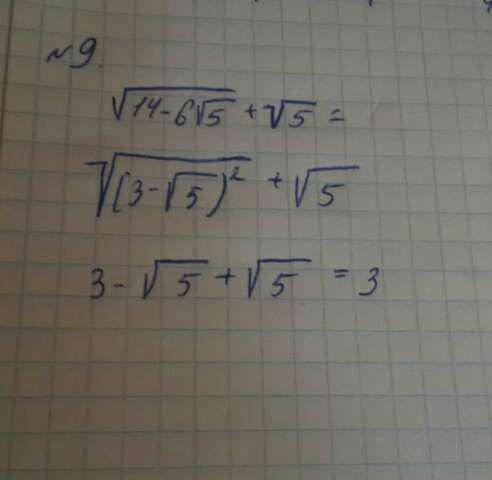 №9.
√(14-6√5) + √5 =
√((3-√5)²) + √5
3-√5 + √5 = 3